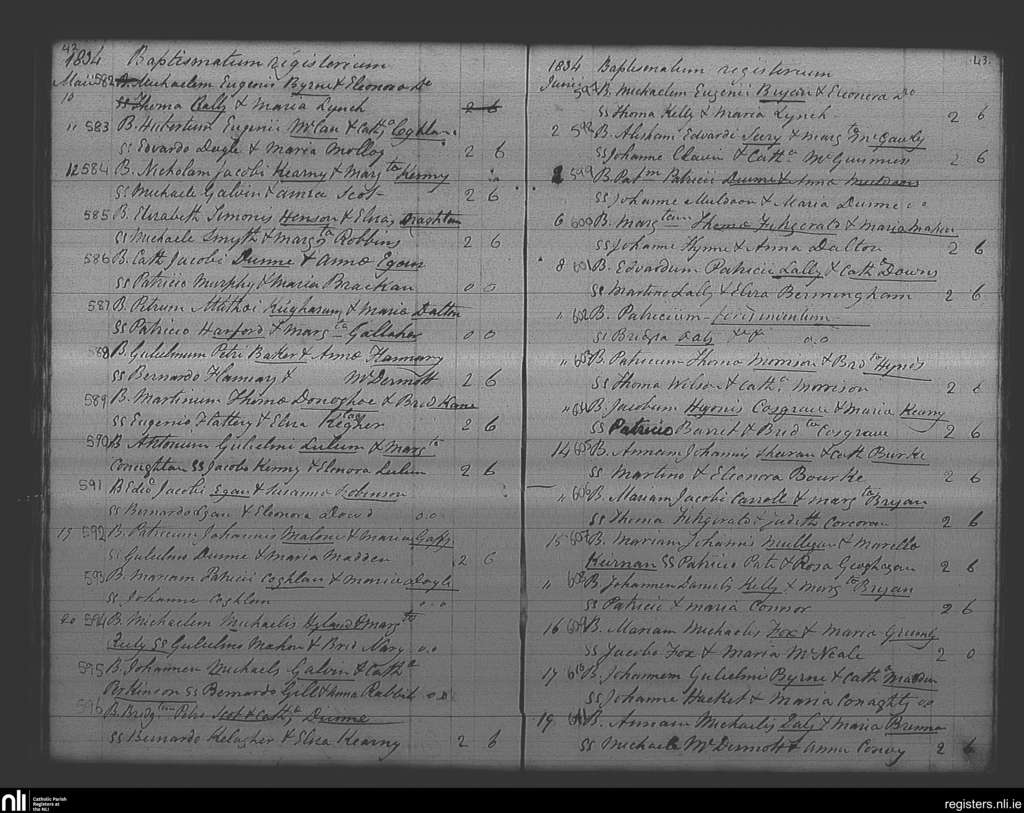 42
1834 Baptismatum registorium
Maii 582 B. Michaelem Eugenii Byrne & Eleonora do
10 SS Thoma Kelly & Maria Lynch 2 6
11 583 B. Eugenii McCan & Cath Coghlan
SS Edvardo Doyle & Maria Molloy 2 6
12 584 B. Nicholam Jacobi Kearny & Marg ta Kenny
SS Michaele Galvin & Scot 2 6
585 B. Elizabeth Simonis Henson & Eliza
SS Michaele Smyth & Marg ta Robbins 2 6
586 B. Cath Jacobi Dunne & Anna Egan
SS Patricio Murphy & Maria Brachan 0 0
587 B. Petrum & Maria Dalton
SS Patricio Harford & Marg ta Gallaher 0 0
588 B. Gulielmum Petri Baker & Anna Flannary
SS Bernardo Flannary & McDermott 2 6
589 B. Martinum Thoma Donoghoe & Brid Kane
SS Eugenio Flattery & Eliza Kegher 2 6
590 B. Antonium Gulielmi & Marg ta
Conaghtan SS Jacobo Kenny & Elenora 2 6
591 B Jacobi Egan & Susanna Robinson
SS Bernardo Egan & Eleonora Dowd 0.0
15 592 B. Patricium Johannis Malone & Maria
SS Gulielmo Dunne & Maria Madden 2 6
593 B. Mariam Patricii Coghlan & Maria Doyle
SS Johanne Coghlan 0.0
20 594 B. Michaelem Michaelis & Marg ta
SS Gulielmo Mahon & Brid Nary 0.0
595 B. Johannem Michaelis Galvin & Cath a
Perkinson SS Bernardo Gill & Anna Rabbit 0.0
596 B. Bridg tam Petri Scot & Cath a Dunne
SS Bernardo Kelagher & Eliza Kearny 2 6
43
1834 Baptismatum registorium
Junii 597 B. Michaelem Eugenii Bryan & Eleonora do
SS Thoma Kelly & Maria Lynch 2 6
2 598 B. Edvardi & Marg ta McGawly
SS Johanne Clavin & Cath a McGuinness 2 6
2 599 B. Pat m Patricii Dunne & Anna Muldoon
SS Johanne Muldoon & Maria Dunne 0 0
6 600 B. Marg tam Thoma Fitzgerald & Maria Mahon
SS Johanne Flynn & Anna Dalton 2 6
8 601 B. Edvardum Patricii Lally & Cath a Downs
SS Martino Lally & Eliza Bermingham 2 6
" 602 B. Patricium inventum
SS Bridgta Daly 0.0
" 603 B. Patricium Thoma Morrison & Brid ta Hynds
SS Thoma Wilson & Cath a Morrison 2 6
" 604 B. Jacobum Cosgrave & Maria Kearny
SS Patricio Barret & Brid ta Cosgrave 2 6
14 605 B. Annam Johannis & Cath Burke
SS Martino & Eleonora Bourke 2 6
" 606 B. Mariam Jacobi Carroll & Marg ta Bryan
SS Thoma Fitzgerald & Judith Corcoran 2 6
15 607 B. Mariam Johannis Mulligan & Marella
Kiernan SS Patricio Pate & Rosa Geoghegan 2 6
" 608 B. Johannem Danielis Kelly & Marg ta Bryan
SS Patricio & Maria Connor 2 6
16 609 B. Mariam Michaelis Fox & Maria
SS Jacobo Fox & Maria McNeale 2 0
17 610 B. Johannem Gulielmi Byrne & Cath a Madden
SS Johanne Hacket & Maria Conaghty 0.0
19 611 B. Annam Michaelis Daly & Maria Brenna
SS Michaele McDermott & Anna Conroy 2 6
nli Catholic Parish Registers at the NLI
registers.nli.ie